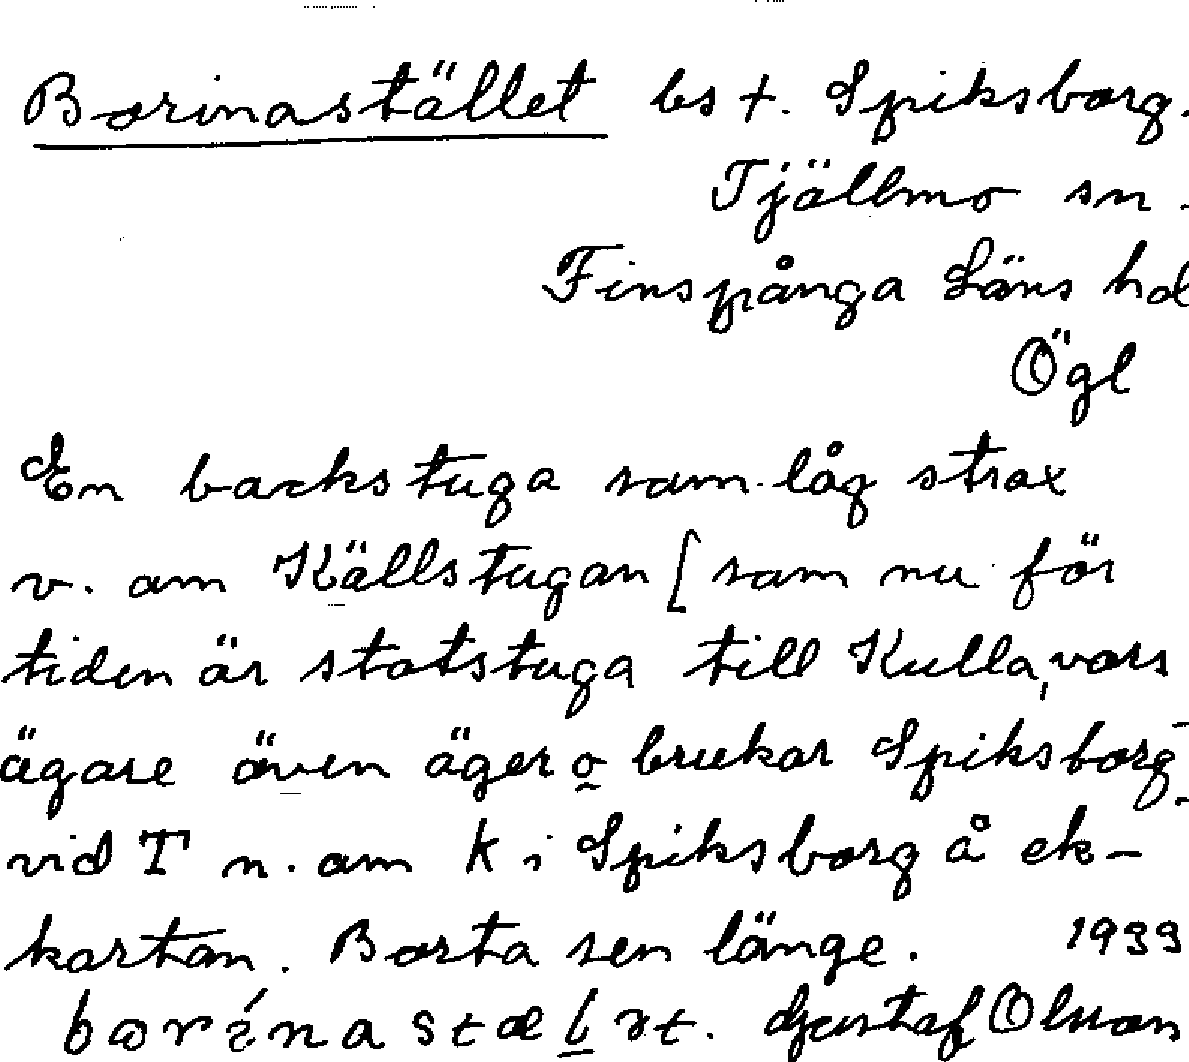 Borinastället bs t. Spiksborg.
Tjällmo sn.
Finspånga Läns hd
Ögl
En backstuga som låg strax
v. om Källstugan [som nu för
tiden är statstuga till Kulla, vars
ägare även äger o brukar Spiksborg
vid T n. om k i Spiksborg å ek-
kartan. Borta sen länge. 1933
Gustaf Olsson